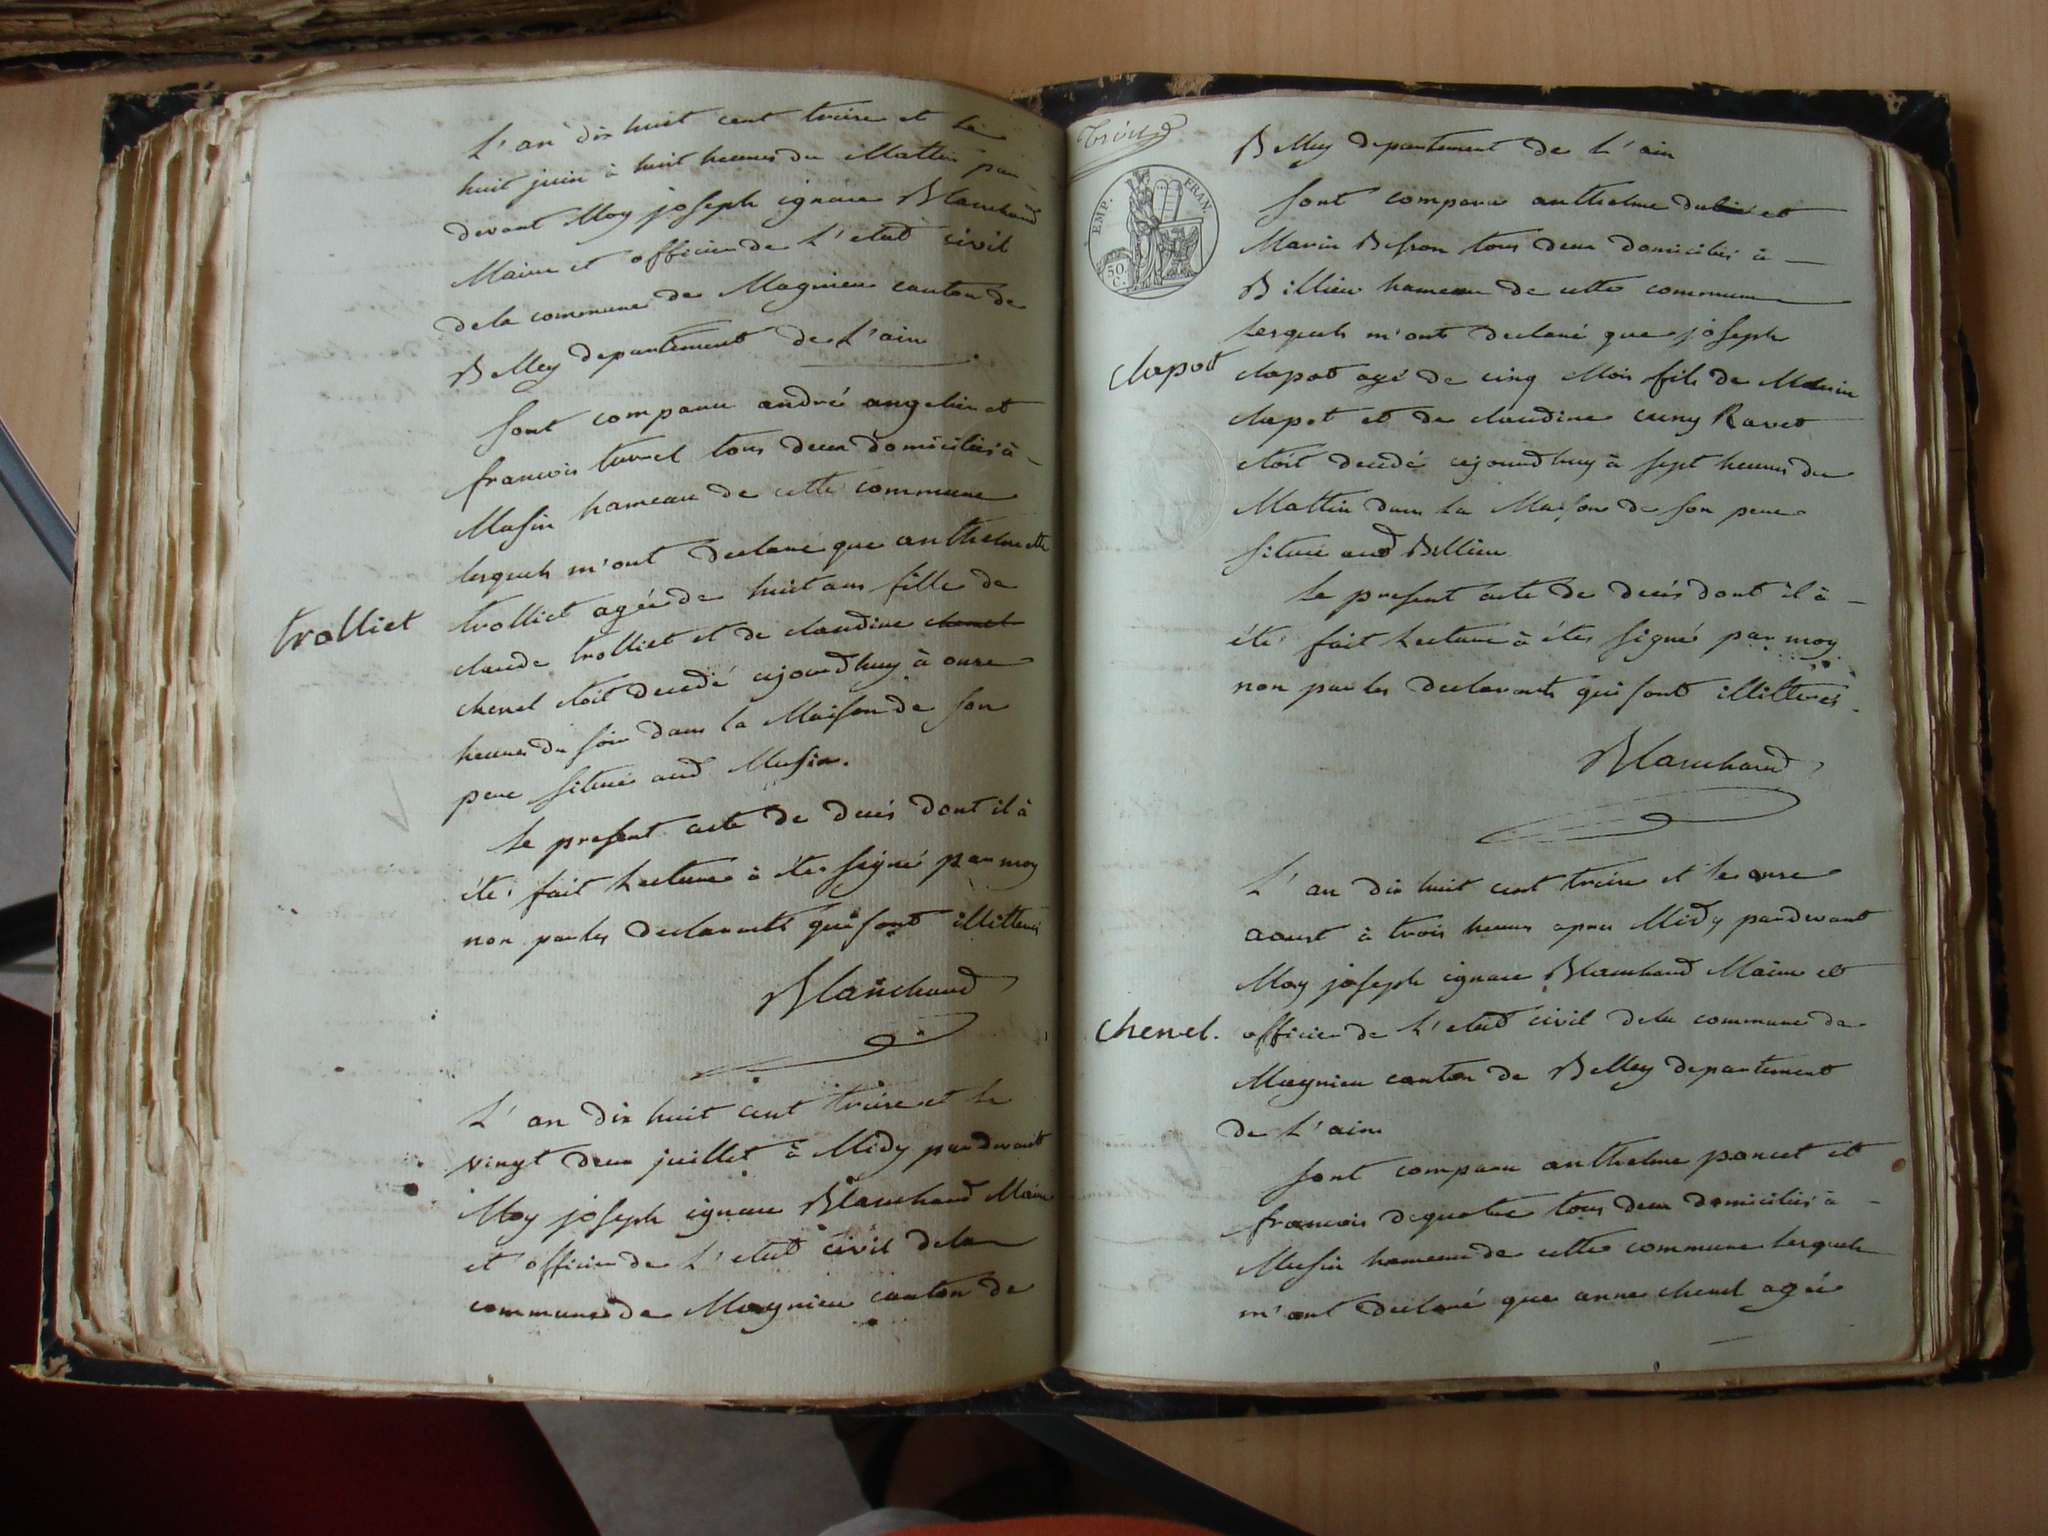 L'an dix huit cent treize et le
huit juin à huit heures du Mattin par
devant Moy joseph ignace Blanchard
Maire et officier de L'etat civil
de la commune de Magnieu canton de
Belley departement de L'ain
Sont comparu andré angelier et
francois turrel tous deux domiciliés à
Musin hameau de cette commune
lesquels m'ont declaré que anthelmette
trolliet
trolliet agée de huit ans fille de
claude trolliet et de claudine chenel
chenel etoit decedé cejourdhuy à onze
heures du soir dans la Maison de son
pere situeé aud Musin.
Le present acte de decès dont il à
été fait Lecture à étes signé par moy
non par les declarants qui sont illitteres
Blanchard
L'an dix huit cent treize et le
vingt deux juillet à Midy pardevant
Moy joseph ignace Blanchard Maire
et officier de L'etat civil de la
commune de Magnieu canton de
EMP. FRAN.
50. C.
Belley departement de L'ain
Sont comparu anthelme et
Marin Besson tous deux domiciliés à
Billieu hameau de cette commune
lesquels m'ont declaré que joseph
clapot
clapot agé de cinq Mois fils de Marin
clapot et de claudine cuny Ravet
etoit decedé cejourdhuy à sept heures du
Mattin dans La Maison de son pere
situeé aud Billieu
Le present acte de decès dont il à
été fait Lecture à étes signé par moy
non par les declarants qui sont illitterés
Blanchard
L'an dix huit cent treize et le onze
aoust à trois heures apres Midy pardevant
Moy joseph ignace Blanchard Maire et
chenel.
officier de L'etat civil de la commune de
Magnieu canton de Belley departement
de L'ain
Sont comparu anthelme poncet et
francois tous deux domiciliés à
Musin hameau de cette commune lesquels
m'ont declaré que anne chenel agée